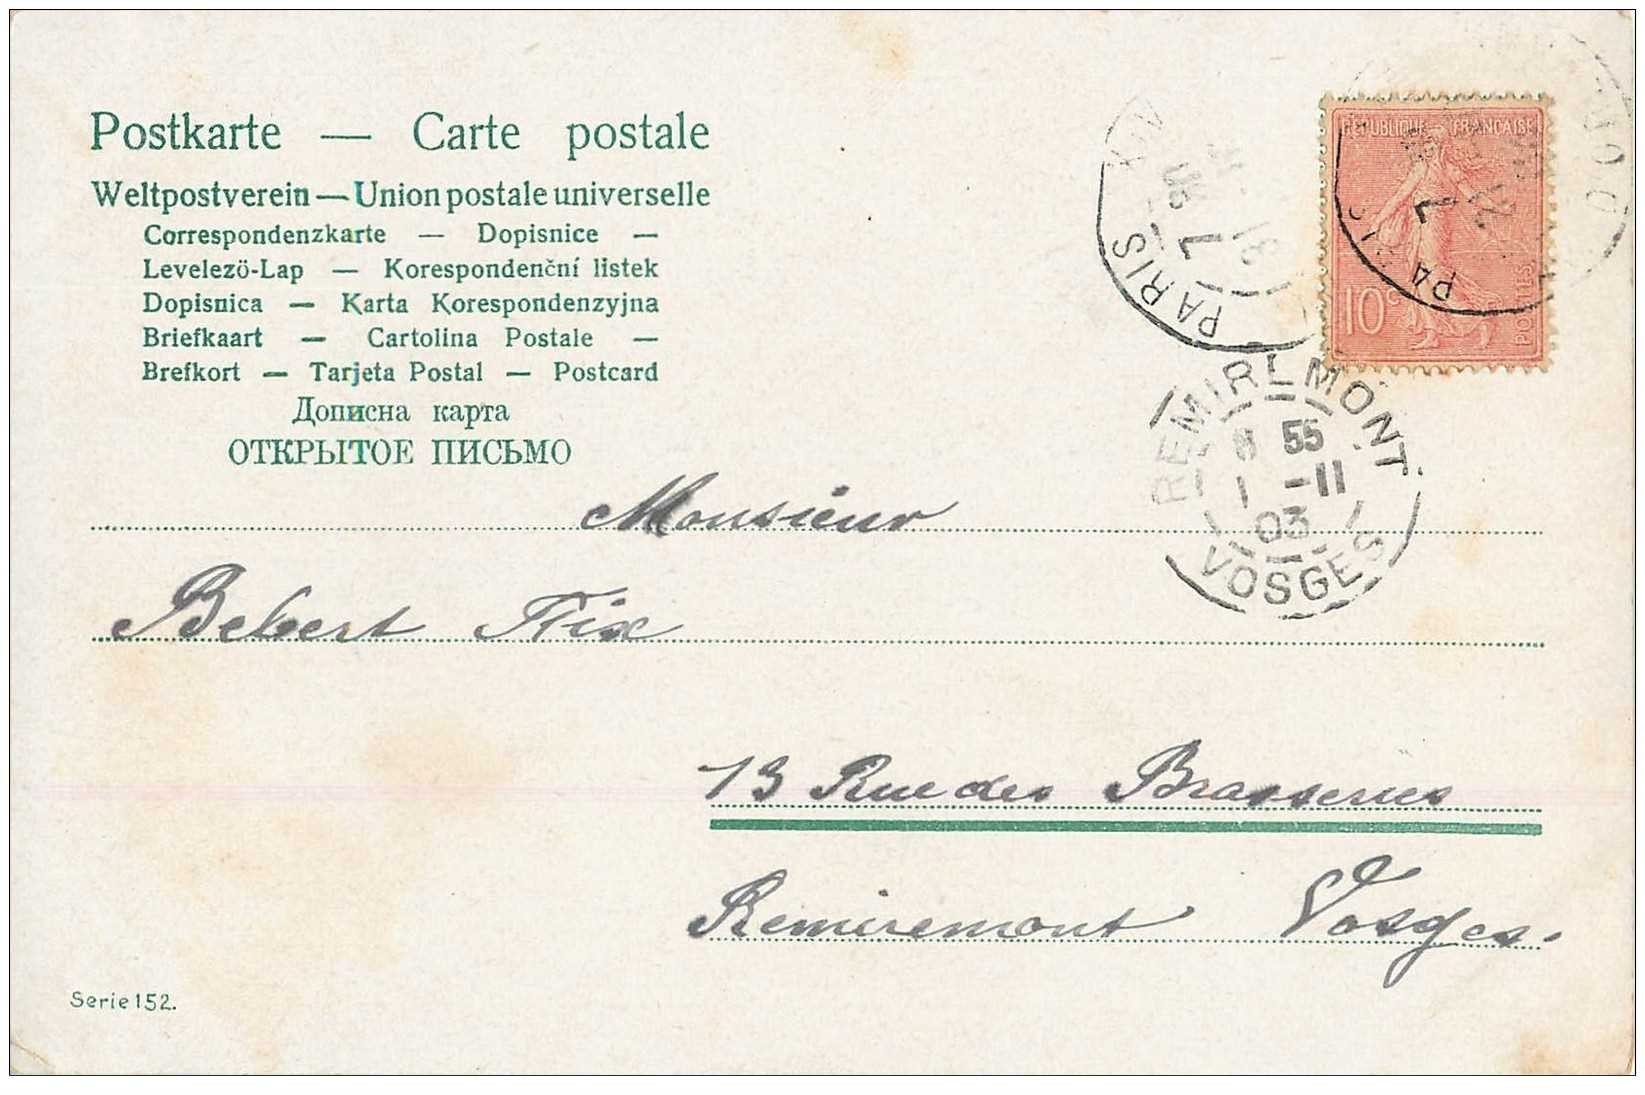 Postkarte — Carte postale
Weltpostverein — Union postale universelle
Correspondenzkarte — Dopisnice —
Levelezö-Lap — Korespondenční listek
Dopisnica — Karta Korespondenzyjna
Briefkaart — Cartolina Postale —
Brefkort — Tarjeta Postal — Postcard
Дописна карта
ОТКРЫТОЕ ПИСЬМО
REPUBLIQUE FRANCAISE
10c POSTES
PARIS XIV
PARIS
REMIREMONT
55
1 -11
03
VOSGES
Monsieur
Bebert Fix
13 Rue des Brasseries
Remiremont Vosges.
Serie 152.